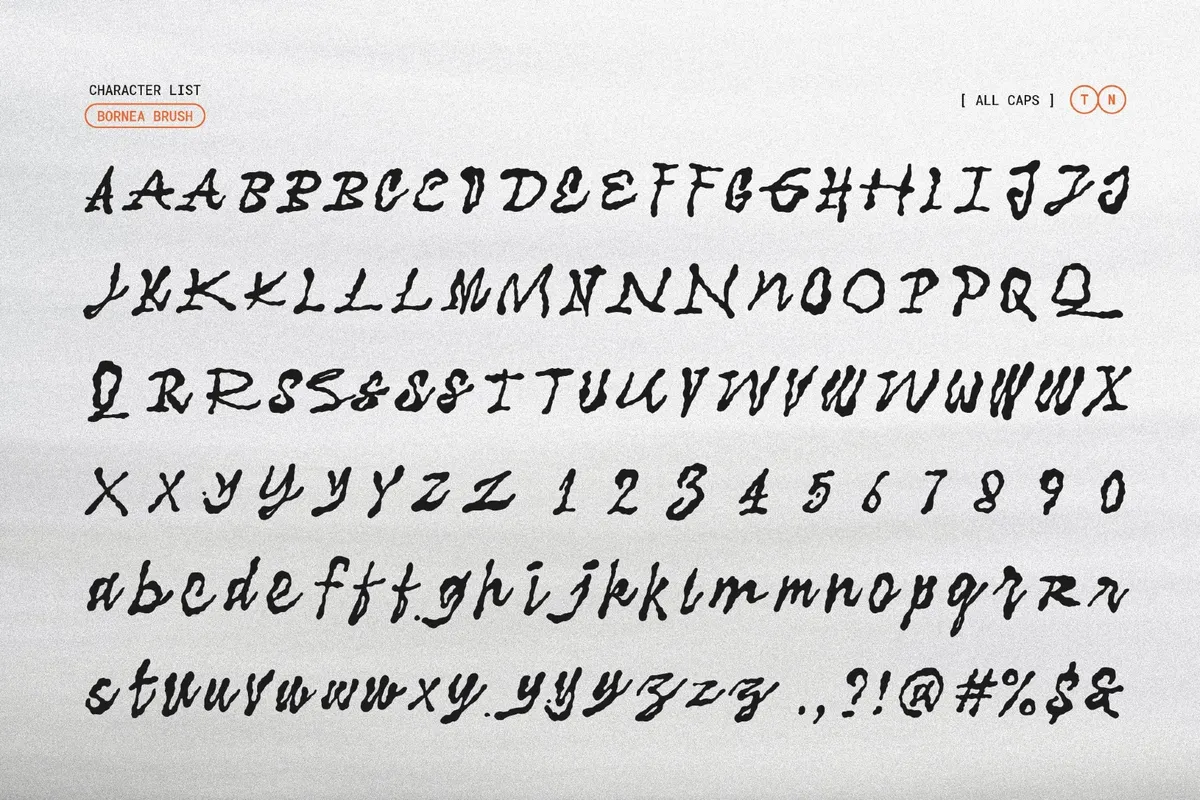 CHARACTER LIST
BORNEA BRUSH
[ ALL CAPS ] T N
A A A B B B C C D D E E F F G G H H I I J J J
J K K K L L L M M N N N n O O P P Q Q
Q R R S S S S S T T U U V W V W W W W W X
X X Y Y Y Y Z Z 1 2 3 4 5 6 7 8 9 0
a b c d e f f f g h i j k k l m m n o p q r R r
s t u u v w w w x y y y y z z z . , ? ! @ # % $ &